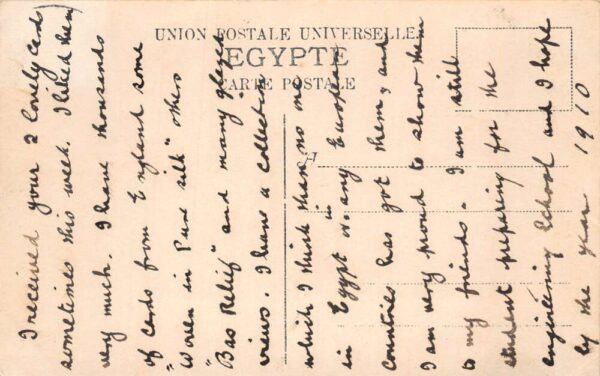 UNION POSTALE UNIVERSELLE.
EGYPTE
CARTE POSTALE
I received your 2 lovely Cards
sometimes this week. I liked them
very much. I have thousands
of cards from England some
"Woven in Pure silk" others
"Bas Relief" and many glazed
views. I have a collection
which I think than no one
in Egypt or in any European
countries has got them, and
I am very proud to show them
to my friends - I am still
student preparing for the
engineering School and I hope
by the year 1910